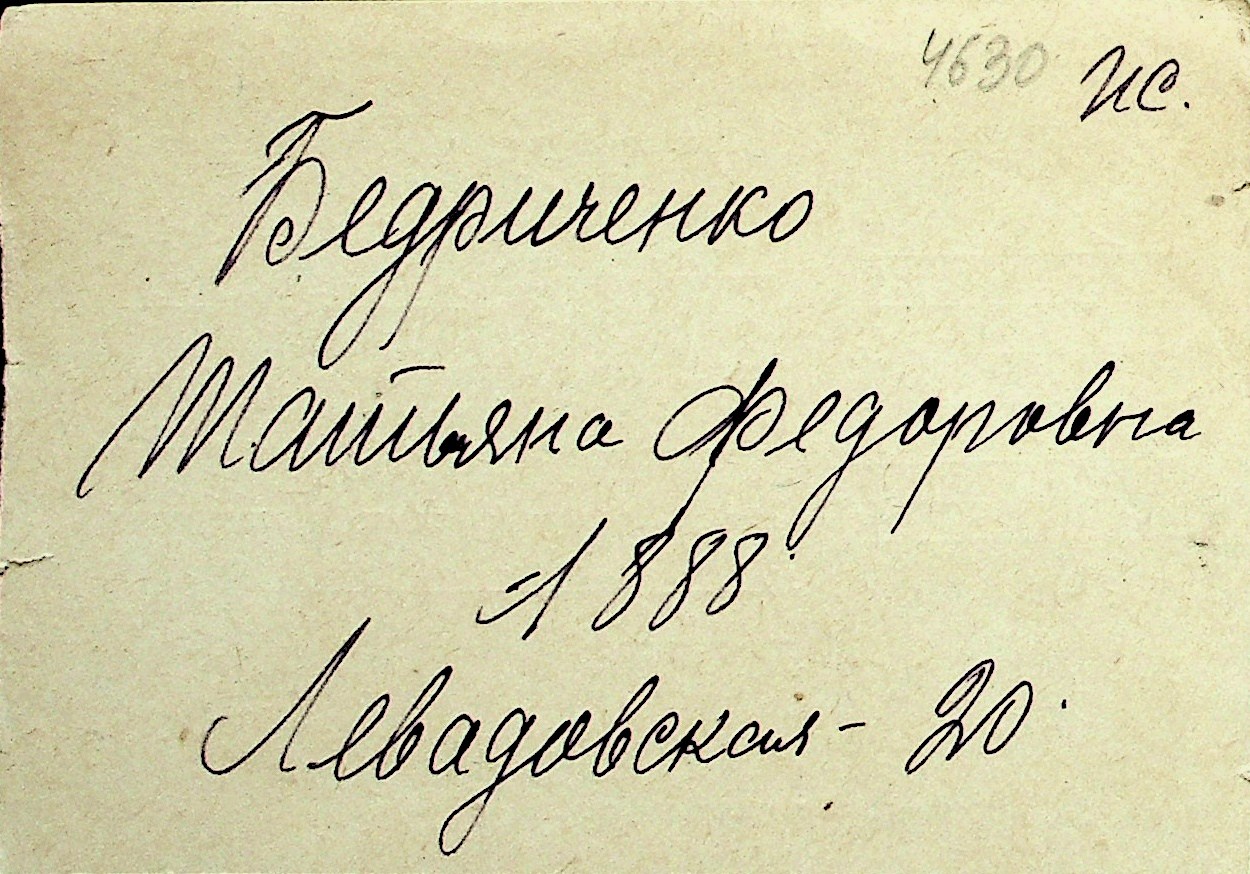 4630 ис.
Бедриченко
Татьяна Федоровна
1888
Левадовская - 20